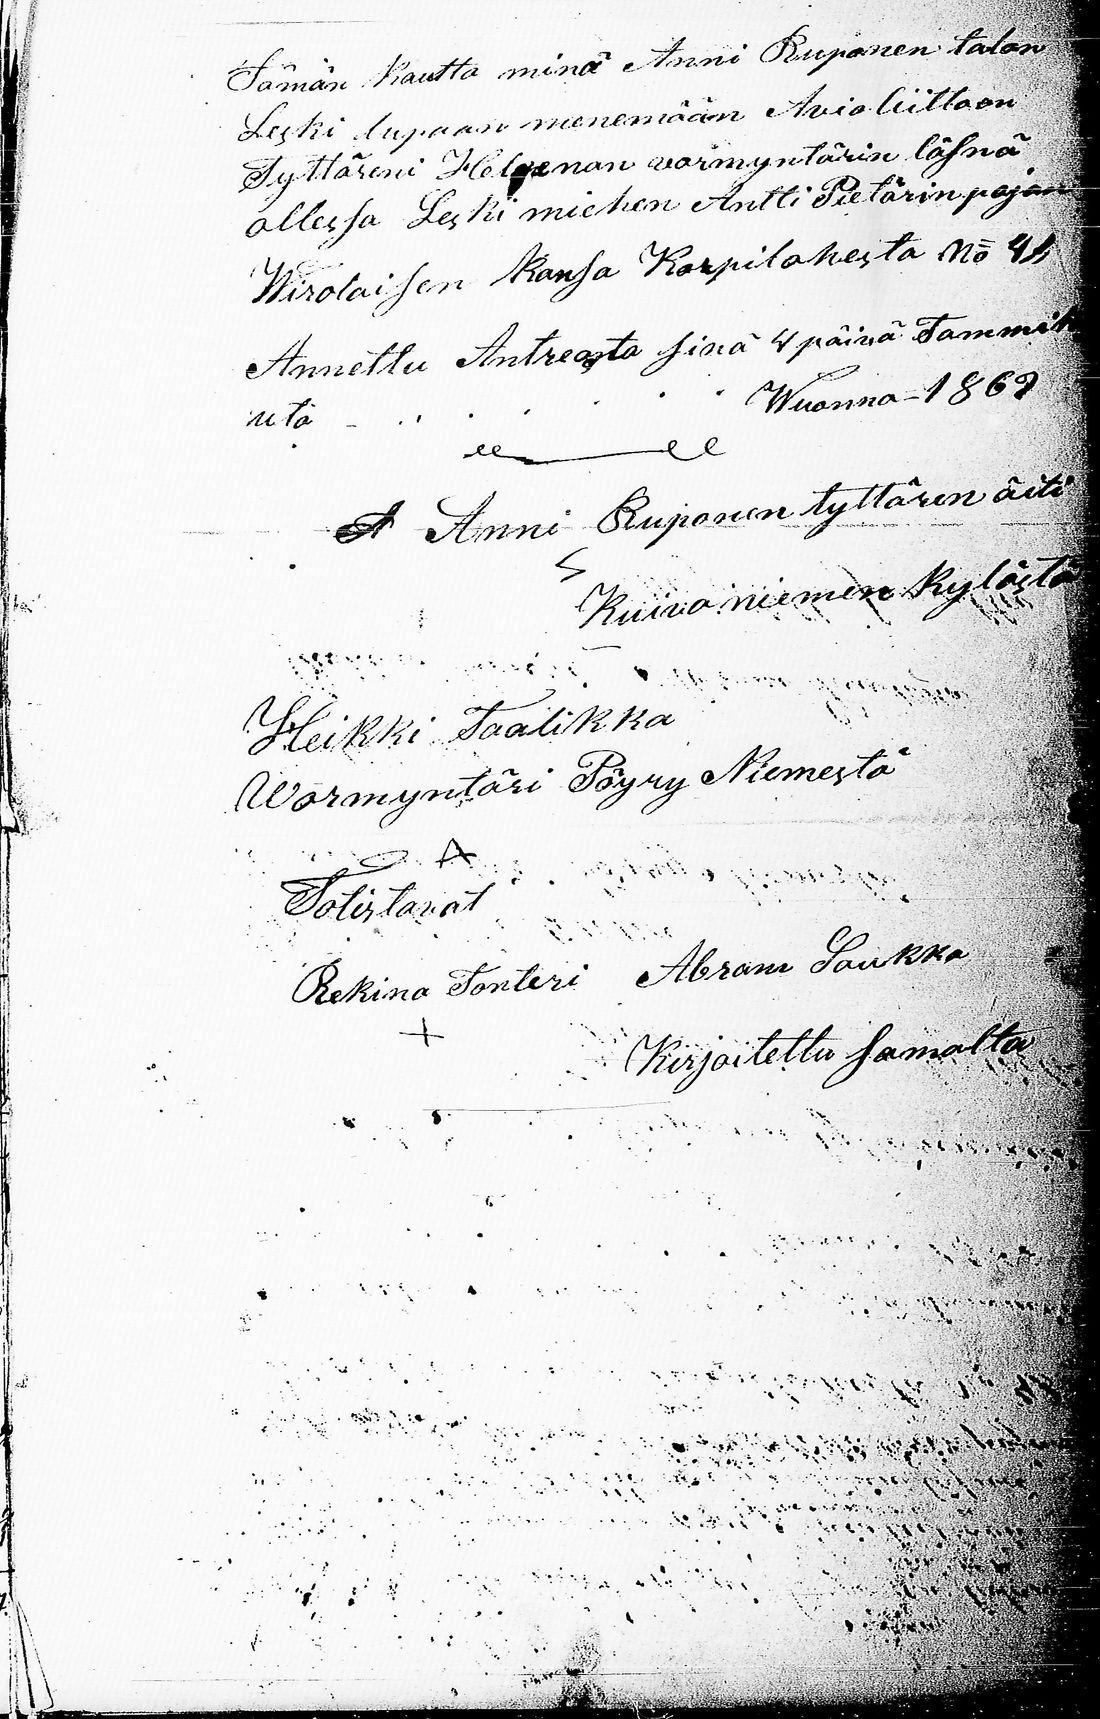 Tämän kautta minä Anni Ruponen talon
Leski lupaan menemään Avioliittoon
Tyttäreni Helenan vormyntärin läsnä
ollessa Leski miehen Antti Pietärinpojan
Wirolaisen kansa Korpilahesta No
Annettu Antreasta sinä 4 päivä Tammik
uta Wuonna 1869
A Anni Ruponen tyttären äiti
Kuivaniemen kylästä
Heikki Taalikka
Wormyntäri Pöyry Niemestä
Totistavat
Rekina Tonteri Abram Saukko
+
Kirjoitettu samalta